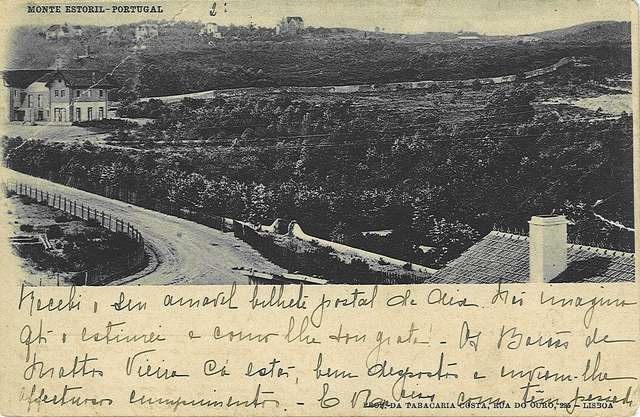 MONTE ESTORIL-PORTUGAL
2ª
Recebi o seu amavel bilhete postal de Não imagina
o estimei e como lhe sou grata! - Os de
Mattos Vieira cá estão, bem e enviam-lhe
affectuosos cumprimentos. - E o
DA TABACARIA COSTA, RUA DO OURO, 295 - LISBOA